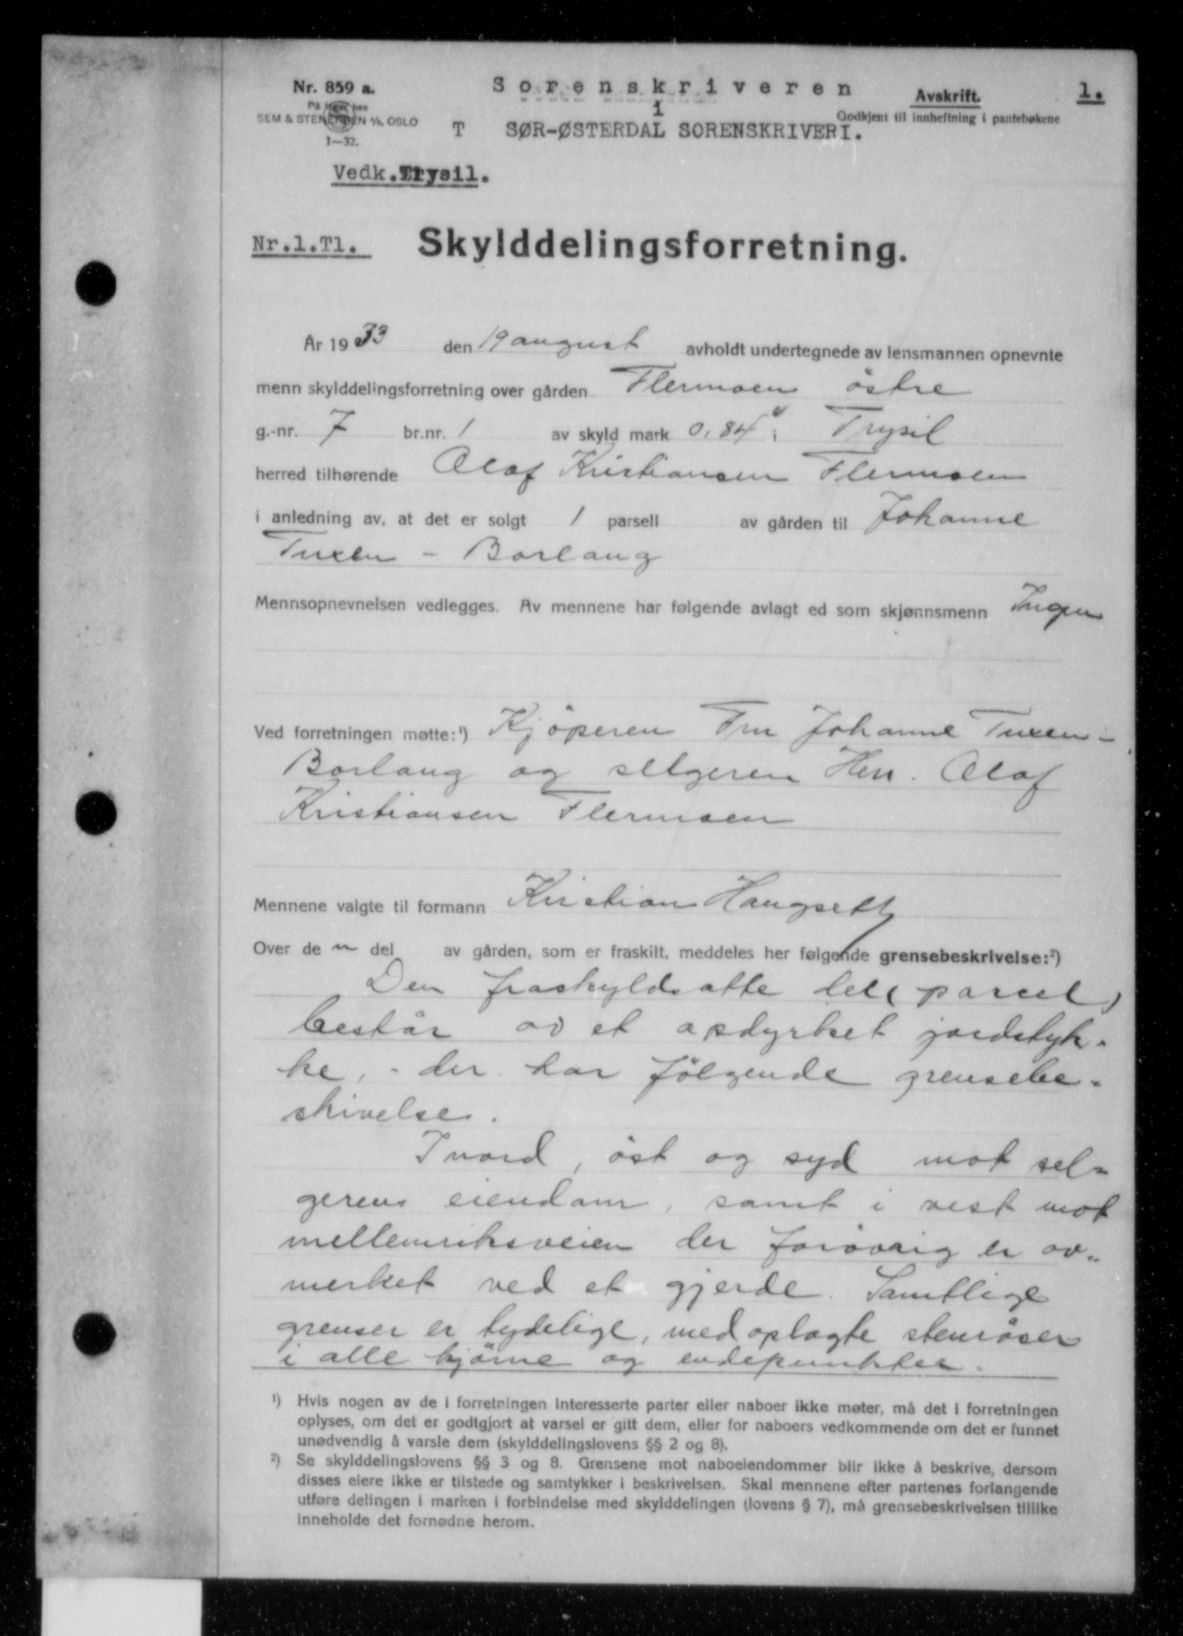 Nr. 859 a.
SEM & STENERSEN A/S, OSLO
1—32.
Sorenskriveren
i
T SØR-ØSTERDAL SORENSKRIVERI.
Avskrift.
Godkjent til innheftning i pantebøkene
1.
Vedk.Trysil.
Nr.1.Tl. Skylddelingsforretning.
År 1933 den 19 august avholdt undertegnede av lensmannen opnevnte
menn skylddelingsforretning over gården Flermoen östre
g.-nr. 7 br.nr. 1 av skyld mark 0,84 i Trysil
herred tilhørende Olaf Kristiansen Flermoen
i anledning av, at det er solgt 1 parsell av gården til Johanne
Tuxen - Borlaug
Mennsopnevnelsen vedlegges. Av mennene har følgende avlagt ed som skjønnsmenn Ingen
Ved forretningen møtte:¹) Kjöperen Fru Johanne Tuxen -
Borlaug og selgeren Herr. Olaf
Kristiansen Flermoen
Mennene valgte til formann Kristian Haugseth
Over de n del av gården, som er fraskilt, meddeles her følgende grensebeskrivelse:²)
Den fraskyldsatte del (parcel)
består av et opdyrket jordstyk-
ke, - der har följende grensebe-
skivelse.
I nord, öst og syd mot sel-
gerens eiendom, samt i vest mot
mellemriksveien der foröverig er av-
merket ved et gjerde. Samtlige
grenser er tydelige, med oplagte stenröser
i alle hjörne og endepunkter.
¹) Hvis nogen av de i forretningen interesserte parter eller naboer ikke møter, må det i forretningen
oplyses, om det er godtgjort at varsel er gitt dem, eller for naboers vedkommende om det er funnet
unødvendig å varsle dem (skylddelingslovens §§ 2 og 8).
²) Se skylddelingslovens §§ 3 og 8. Grensene mot naboeiendommer blir ikke å beskrive, dersom
disses eiere ikke er tilstede og samtykker i beskrivelsen. Skal mennene efter partenes forlangende
utføre delingen i marken i forbindelse med skylddelingen (lovens § 7), må grensebeskrivelsen tillike
inneholde det fornødne herom.